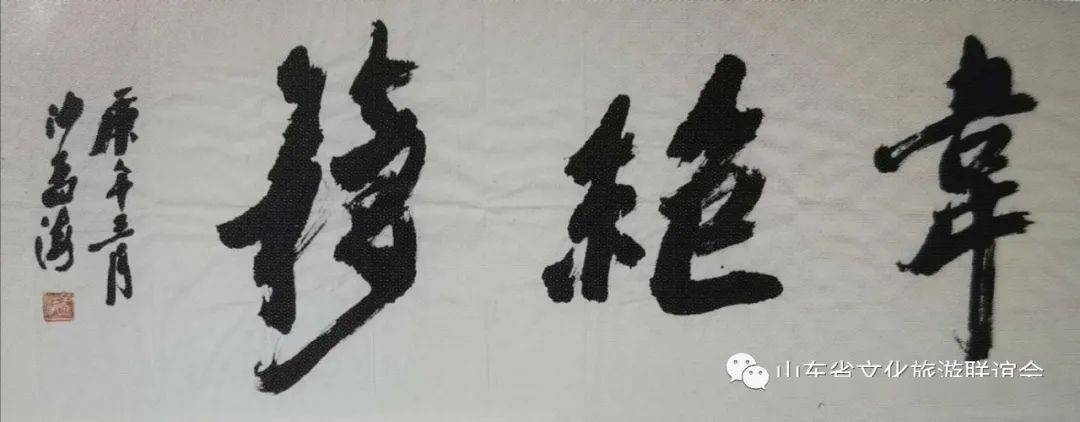 韋絶
庚午三月
沙孟海
山东省文化旅游联谊会